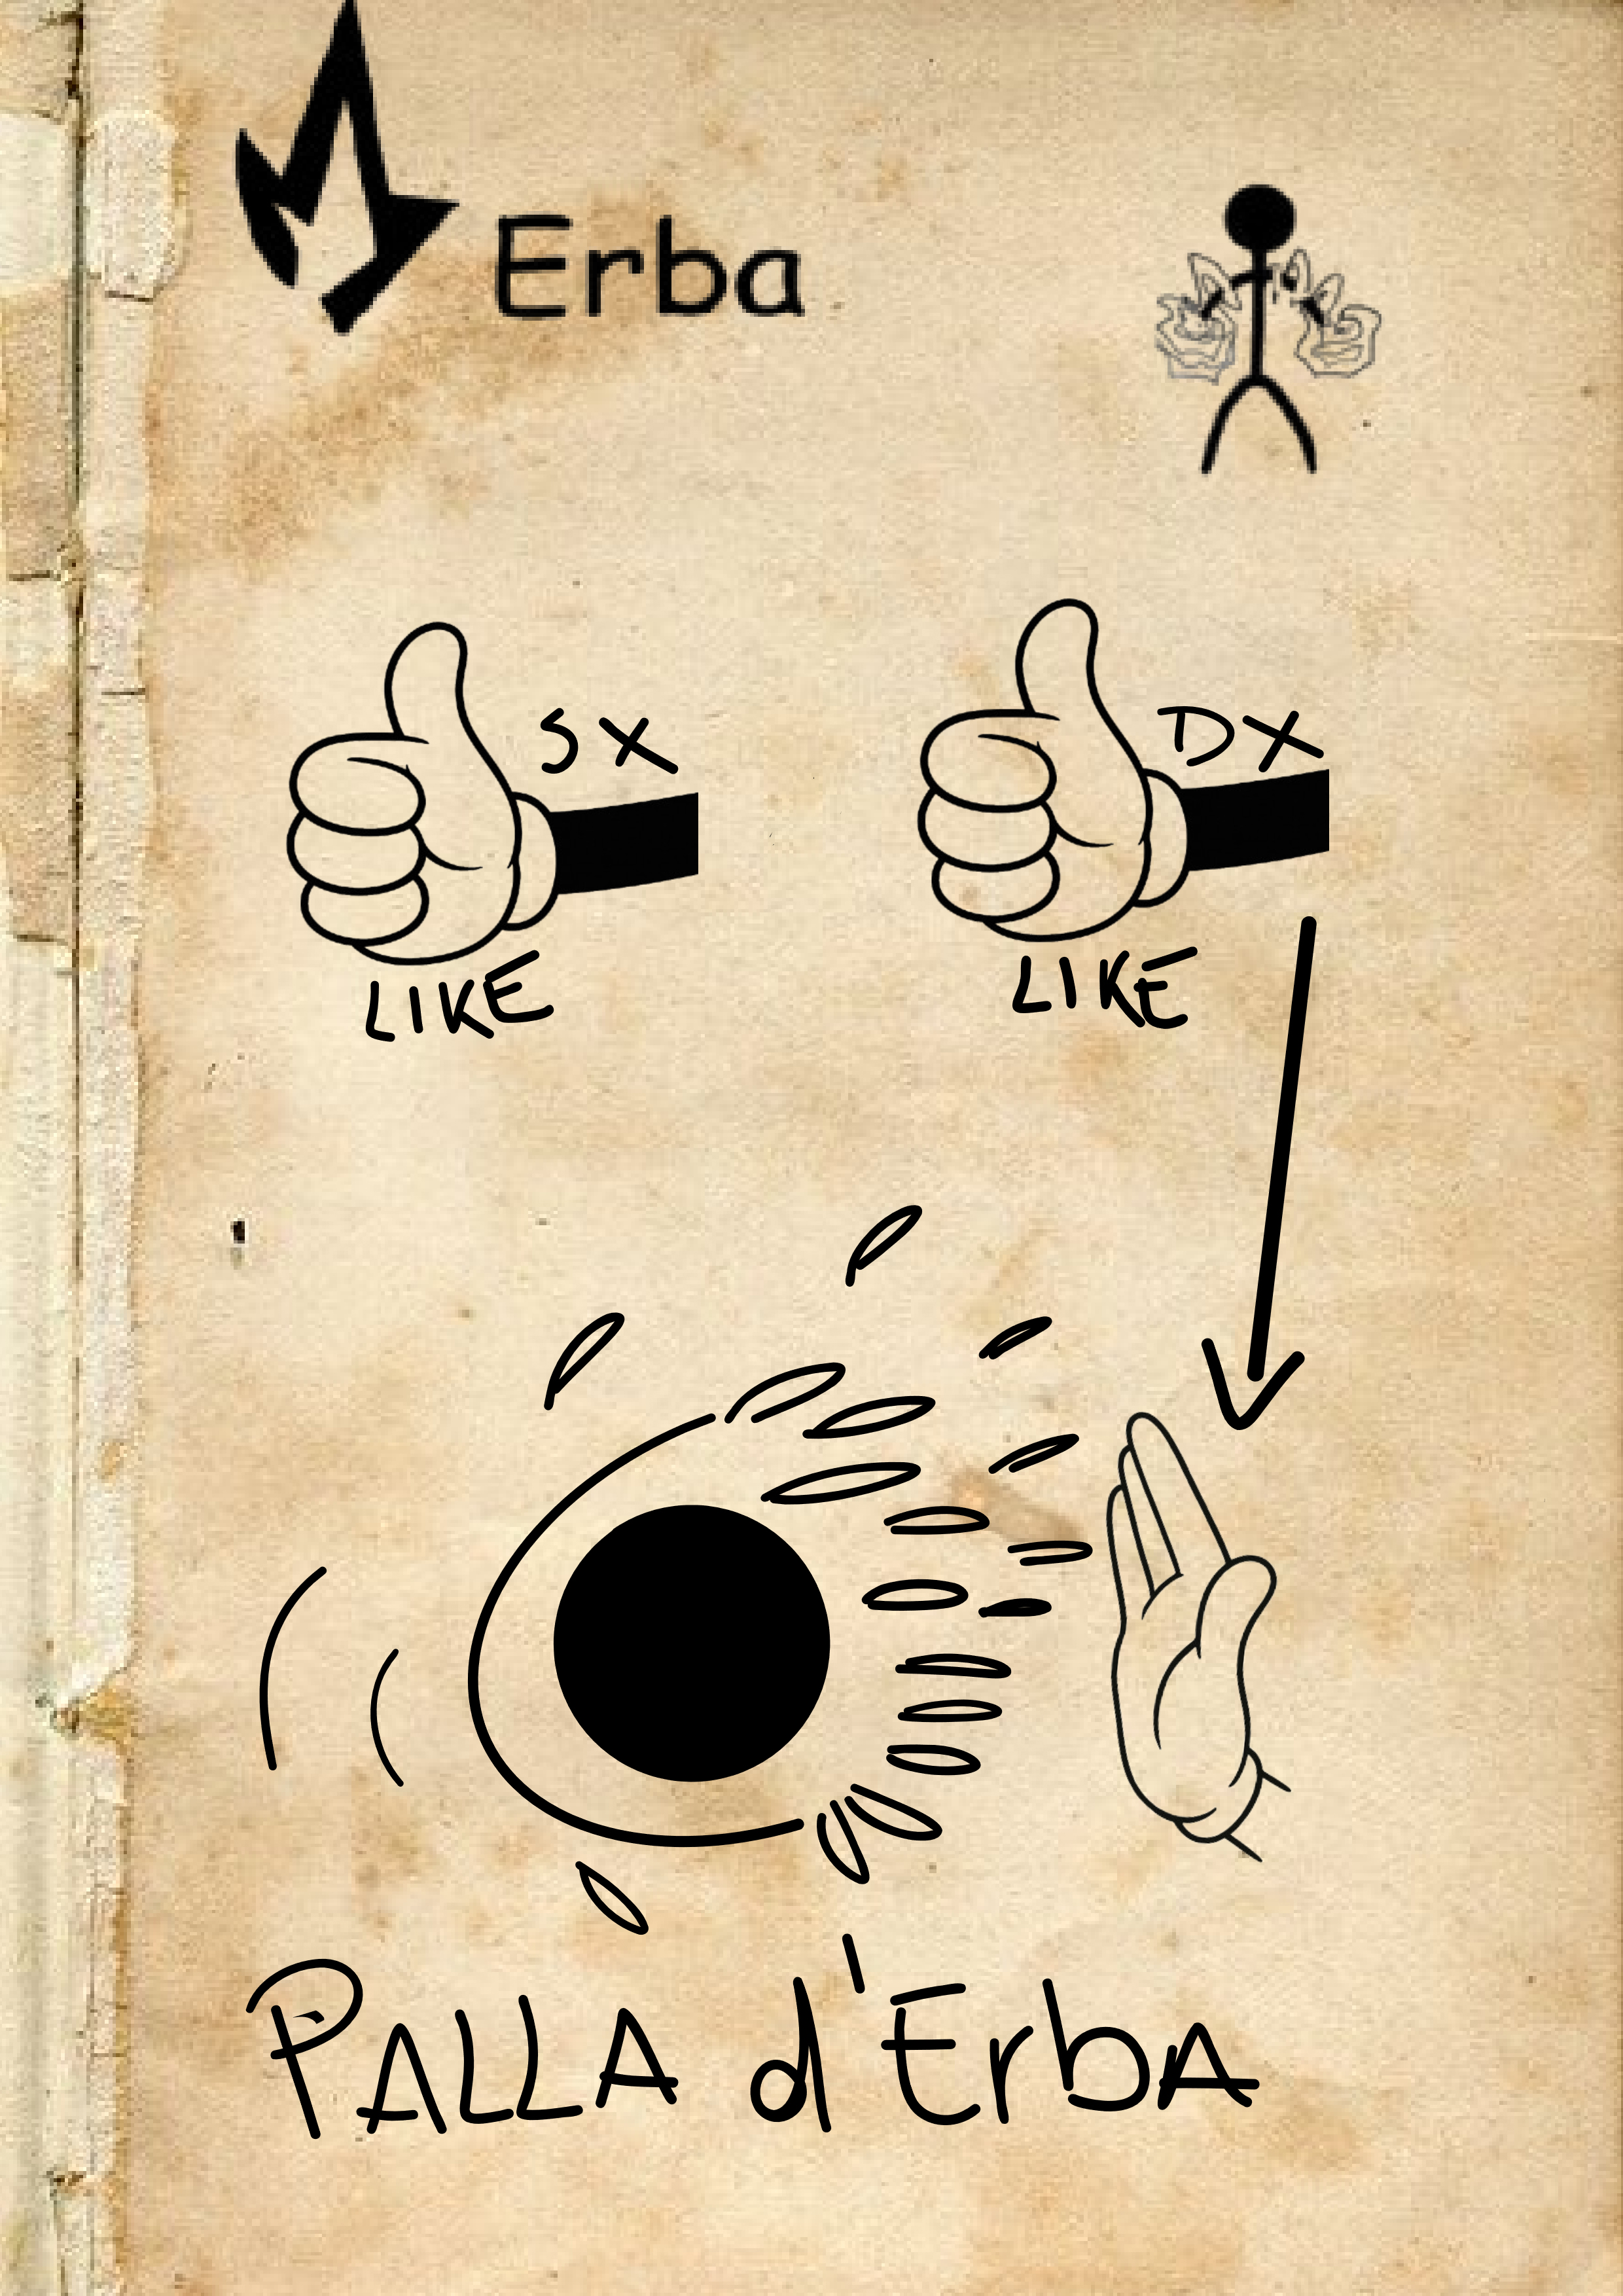 Erba
SX DX
LIKE LIKE
PALLA d'ErbA